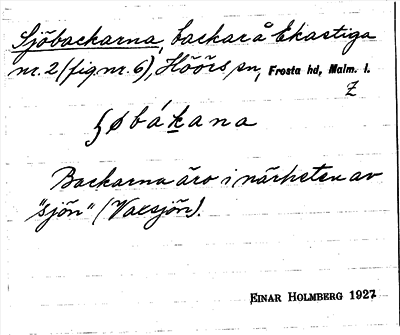 Sjöbackarna, backar å Ekastiga
nr. 2 (fig. nr. 6), Höörs sn, Frosta hd, Malm. l.
Z
ʃøbákana
Backarna äro i närheten av
"sjön" (Vaxsjön).
EINAR HOLMBERG 1927